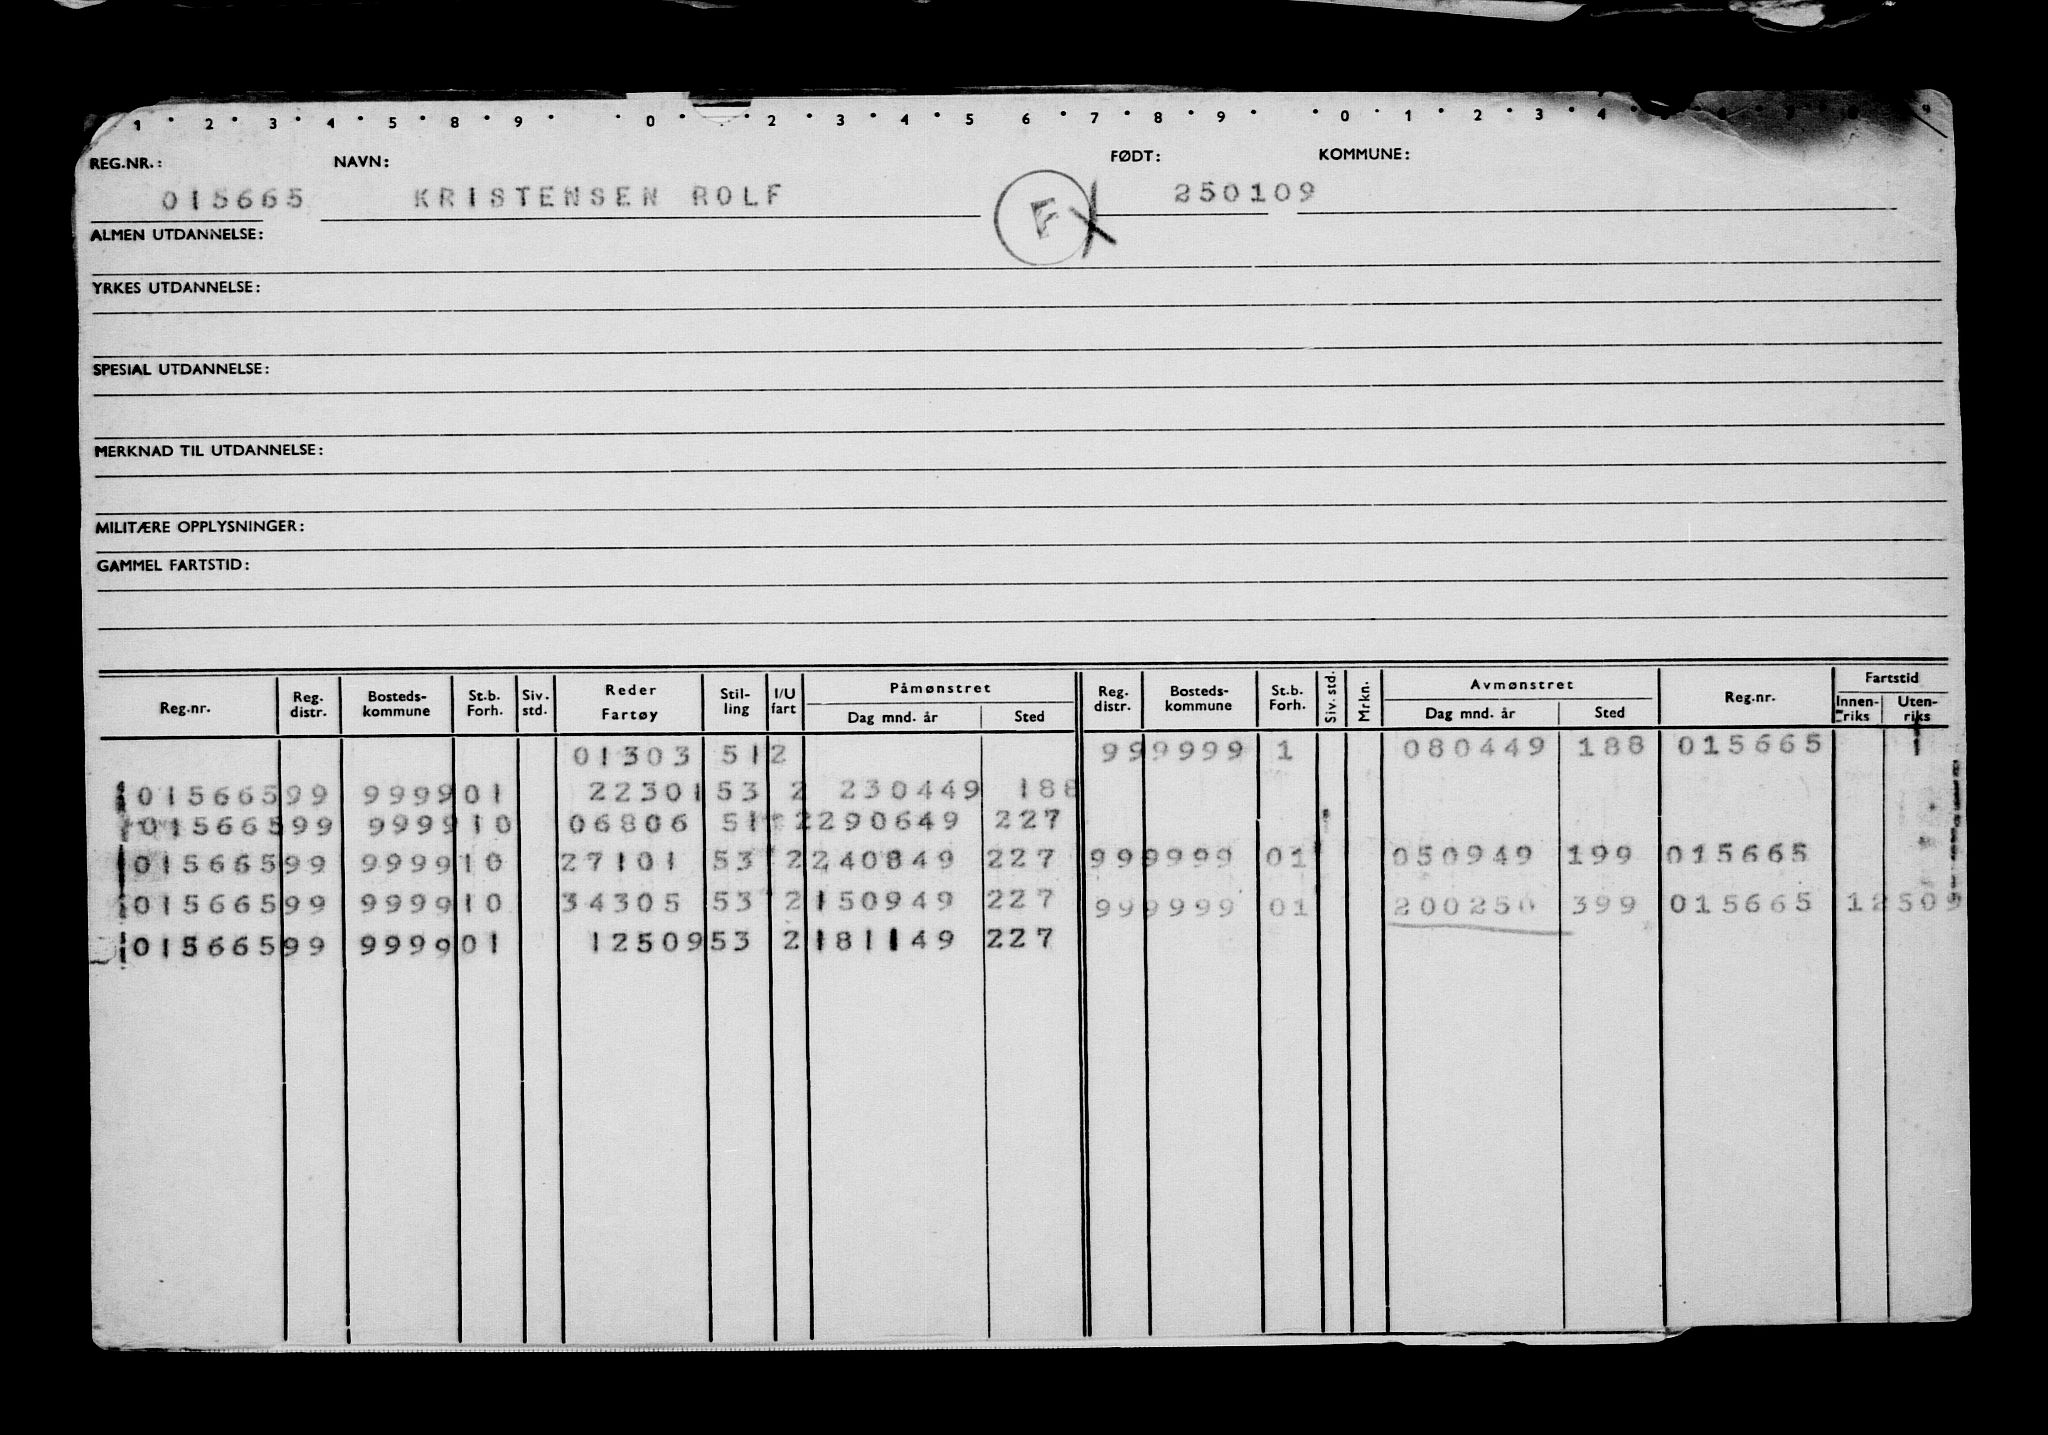 1 · 2 · 3 · 4 · 5 · 8 · 9 · · 0 · · 2 · 3 · 4 · 5 · 6 · 7 · 8 · 9 · · 0 · 1 · 2 · 3 · 4 · 9
REG.NR.: NAVN: FØDT: KOMMUNE:
015665 KRISTENSEN ROLF F 250109
ALMEN UTDANNELSE:
YRKES UTDANNELSE:
SPESIAL UTDANNELSE:
MERKNAD TIL UTDANNELSE:
MILITÆRE OPPLYSNINGER:
GAMMEL FARTSTID:
Reg.nr. Reg. distr. Bosteds-kommune St.b. Forh. Siv. std. Reder Fartøy Stil-ling I/U fart Påmønstret Dag mnd. år Sted Reg. distr. Bosteds-kommune St.b. Forh. Siv. std. Mrkn. Avmønstret Dag mnd. år Sted Reg.nr. Fartstid Innen-riks Uten-riks
01303 51 2 99 9999 1 080449 188 015665 1
015665 99 9999 01 22301 53 2 230449 188
015665 99 9999 10 06806 51 2 290649 227
015665 99 9999 10 27101 53 2 240849 227 99 9999 01 050949 199 015665
015665 99 9999 10 34305 53 2 150949 227 99 9999 01 200250 399 015665 12509
015665 99 9999 01 12509 53 2 181149 227